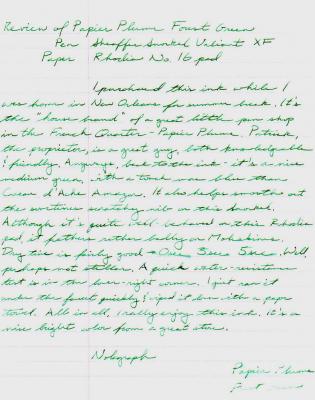 Review of Papier Plume Forest Green
Pen Sheaffer Snorkel Valiant XF
Paper Rhodia No. 16 pad
I purchased this ink while I
was home in New Orleans for summer break. It's
the "house brand" of a great little pen shop
in the French Quarter - Papier Plume. Patrick,
the proprietor, is a great guy, both knowledgable
& friendly. Anyways, back to the ink - it's a nice
medium green, with a touch more blue than
Caran d'Ache Amazon. It also helps smooths out
the sometimes scratchy nib on this Snorkel.
Although it's quite well behaved on this Rhodia
pad, it feathers rather badly on Moleskines.
Dry time is fairly good - One 3sec 5sec. Well,
perhaps not stellar. A quick water-resistance
test is in the lower-right corner. I just ran it
under the faucet quickly & wiped it down with a paper
towel. All in all, I really enjoy this ink. It's a
nice bright color from a great store.
Nolograph
Papier Plume